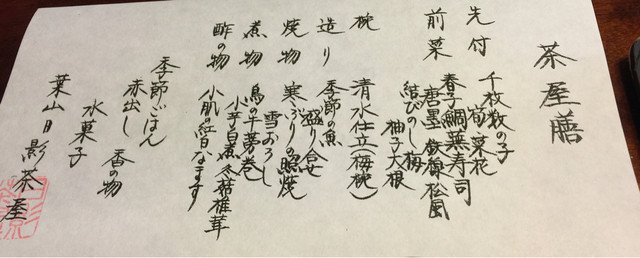 茶屋膳
先付 千枚数の子
旬菜花
前菜 春子鯛蕪寿司
唐墨 松風
結びのし梅
柚子大根
椀 清水仕立(梅椀)
造り 季節の魚
盛り合せ
焼物 寒ぶりの照焼
雪おろし
煮物 鳥の牛蒡巻
小芋白煮 冬菇椎茸
酢の物 小肌の紅白なます
季節ごはん
赤出し 香の物
水菓子
葉山日影茶屋